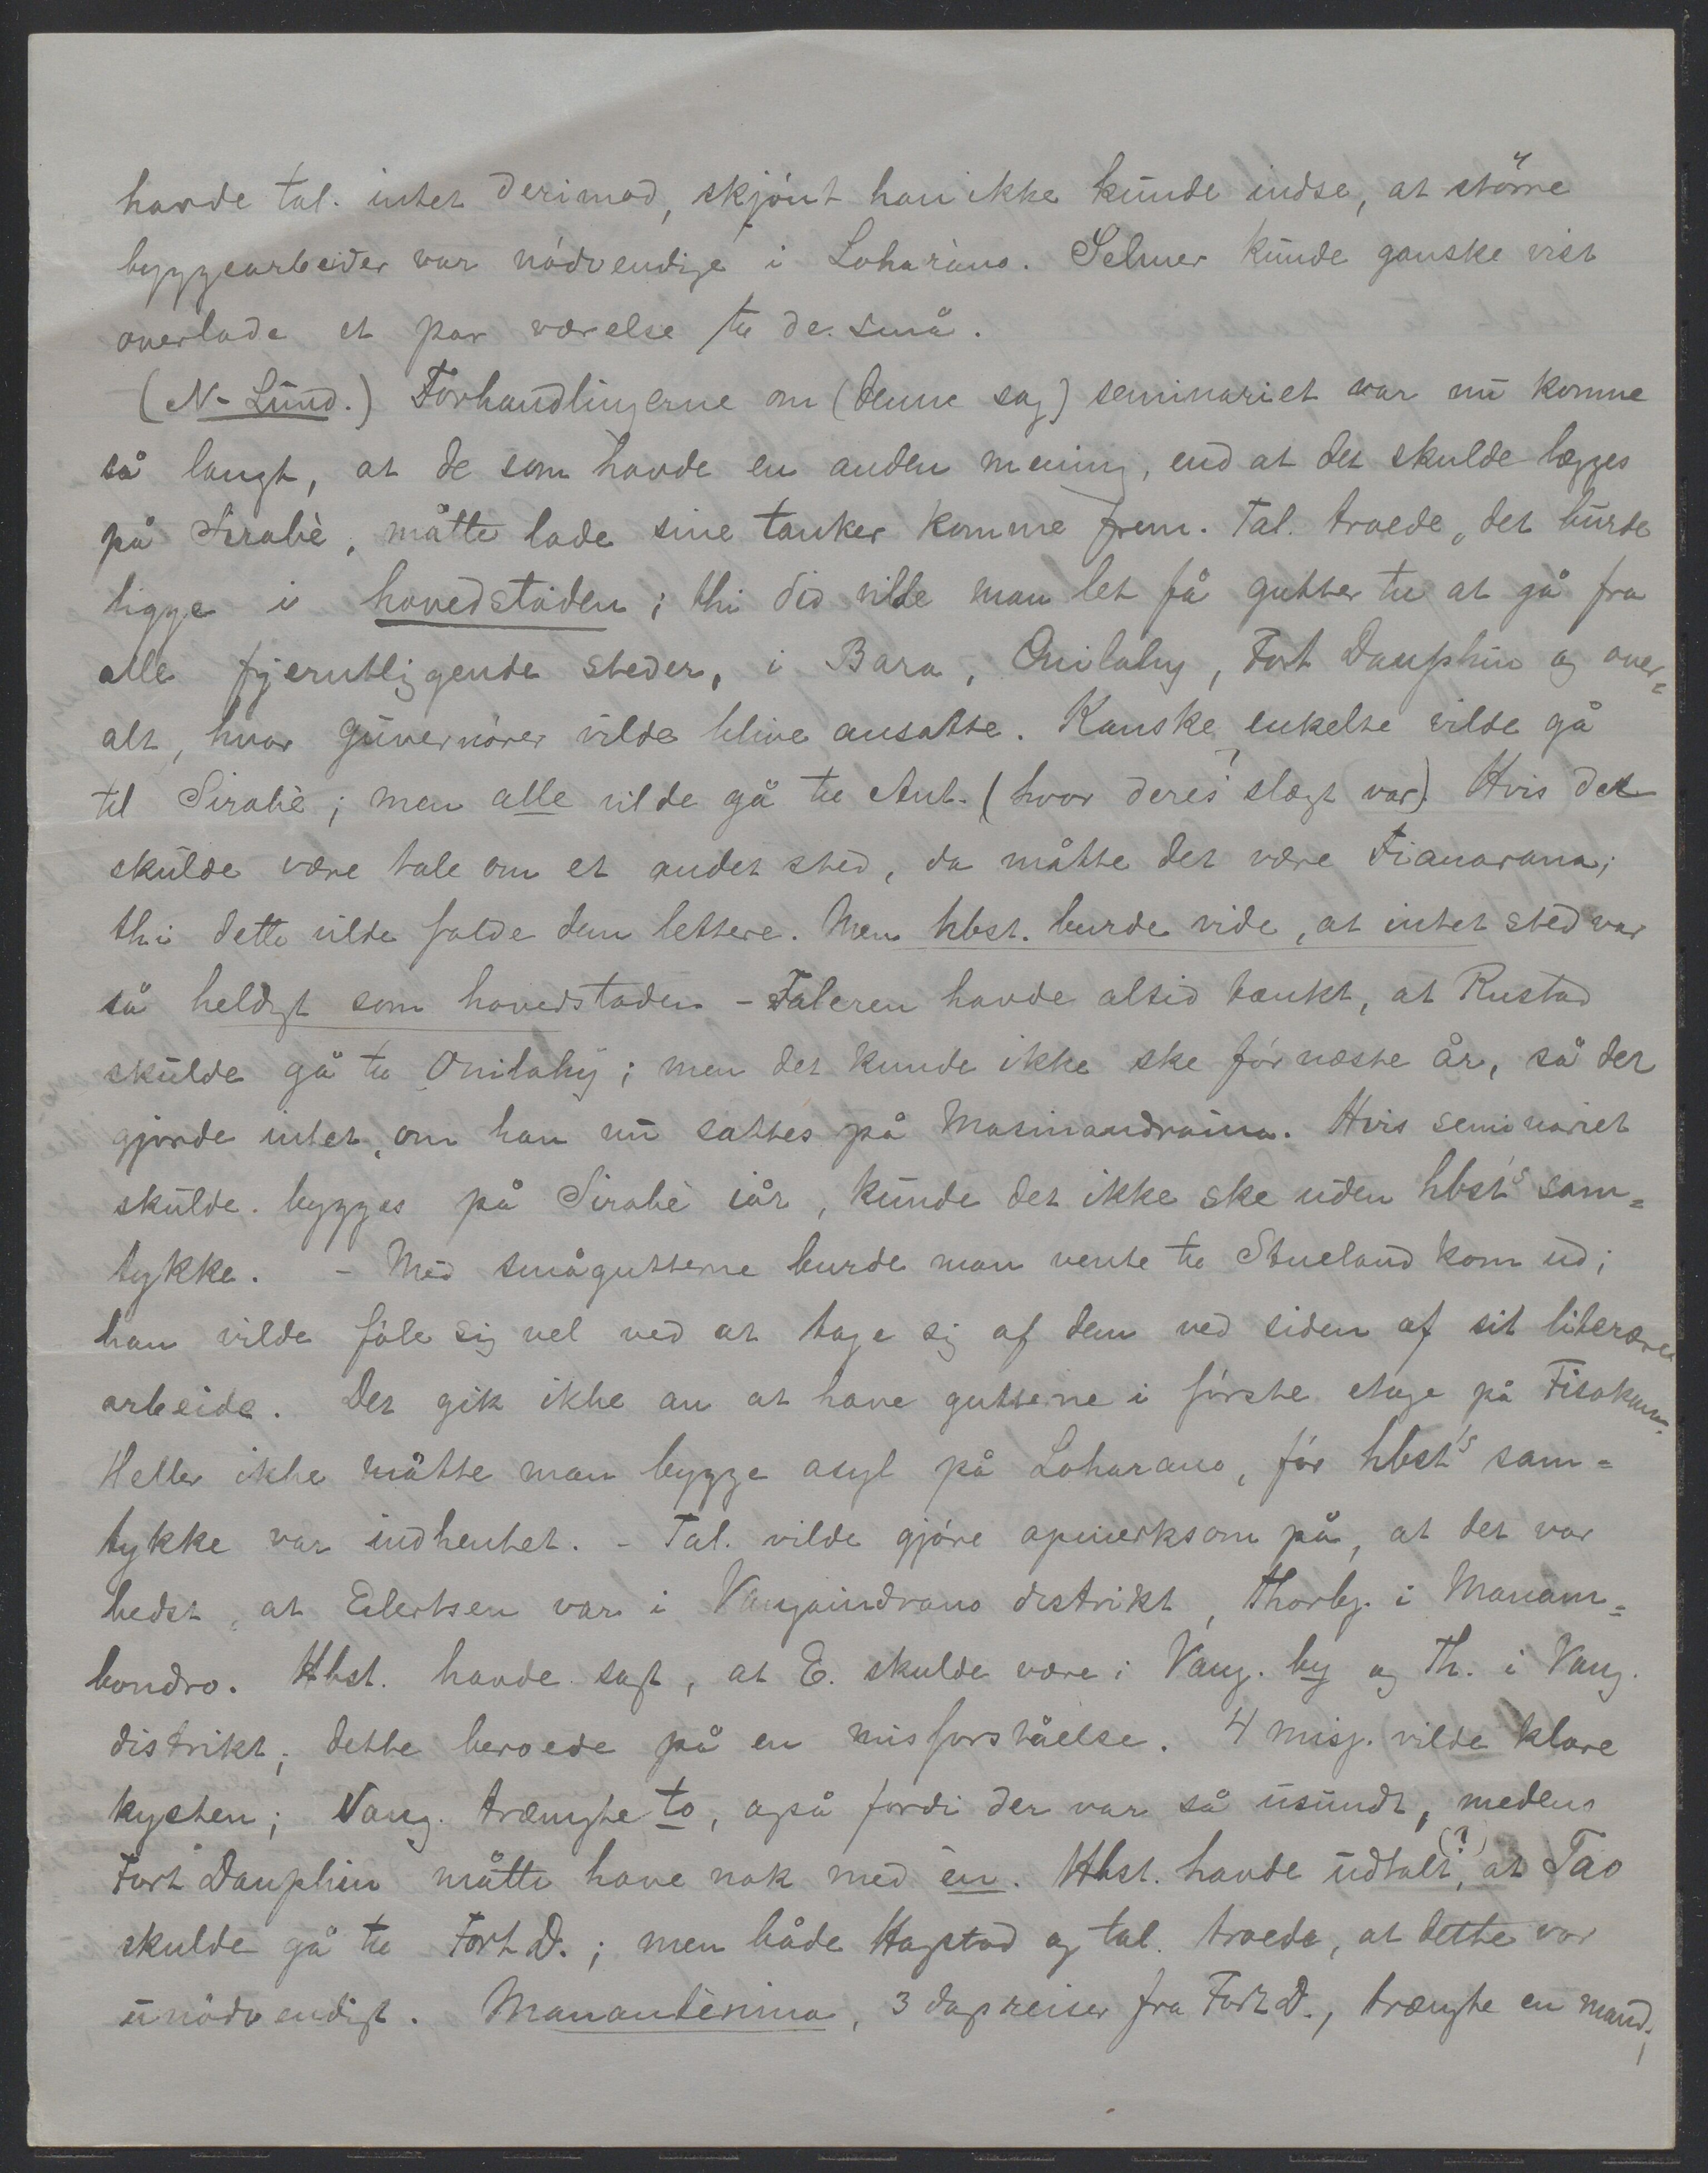 havde tal. intet derimod, skjønt han ikke kunde indse, at större
byggearbeider var nødvendige i Loharano. Selmer kunde ganske vist
overlade et par værelse til de små.
(N- Lund.) Forhandlingerne om (denne sag) seminariet var nu komne
så langt, at de som havde en anden mening, end at det skulde lægges
på Sirabè, måtte lade sine tanker komme frem. Tal. troede, det burde
ligge i hovedstaden; thi did vilde man let få gutter til at gå fra
alle fjerntliggende steder, i Bara, Onilahy, Fort Dauphin og over=
alt, hvor guvernører vilde blive ansatte. Kanske enkelte vilde gå
til Sirabè; men alle vilde gå til Ant. (hvor deres? slægt var). Hvis det
skulde være tale om et andet sted, da måtte det være Fianarana;
thi dette vilde falde dem lettere. Men hbst. burde vide, at intet sted var
så heldigt som hovedstaden - Taleren havde altid tænkt, at Rustad
skulde gå til Onilahy; men det kunde ikke ske før næste år, så det
gjorde intet, om han nu sattes på Masinandraina. Hvis seminariet
skulde bygges på Sirabè iår, kunde det ikke ske uden hbst's sam=
tykke. - Med smågutterne burde man vente til Stueland kom ud;
han vilde føle sig vel ved at tage sig af dem ved siden af sit literære
arbeide. Det gik ikke an at have gutterne i første etage på Fisakana.
Heller ikke måtte man bygge asyl på Loharano, før hbst's sam=
tykke var indhentet. - Tal. vilde gjøre opmerksom på, at det var
bedst, at Eilertsen var i Vangaindrano distrikt, Thorbj. i Manam=
bondro. Hbst. havde sagt, at E. skulde være i Vang. by og Th. i Vang.
distrikt; dette beroede på en misforståelse. 4 misj. vilde klare
kysten; Vang. trængte to, også fordi der var så usundt, medens
Fort Dauphin måtte have nok med èn. Hbst. havde udtalt (?), at Tao
skulde gå til Fort D.; men både Hagstad og tal. troede, at dette var
unødvendigt. Manantènina, 3 dagreiser fra Fort D., trængte en mand;